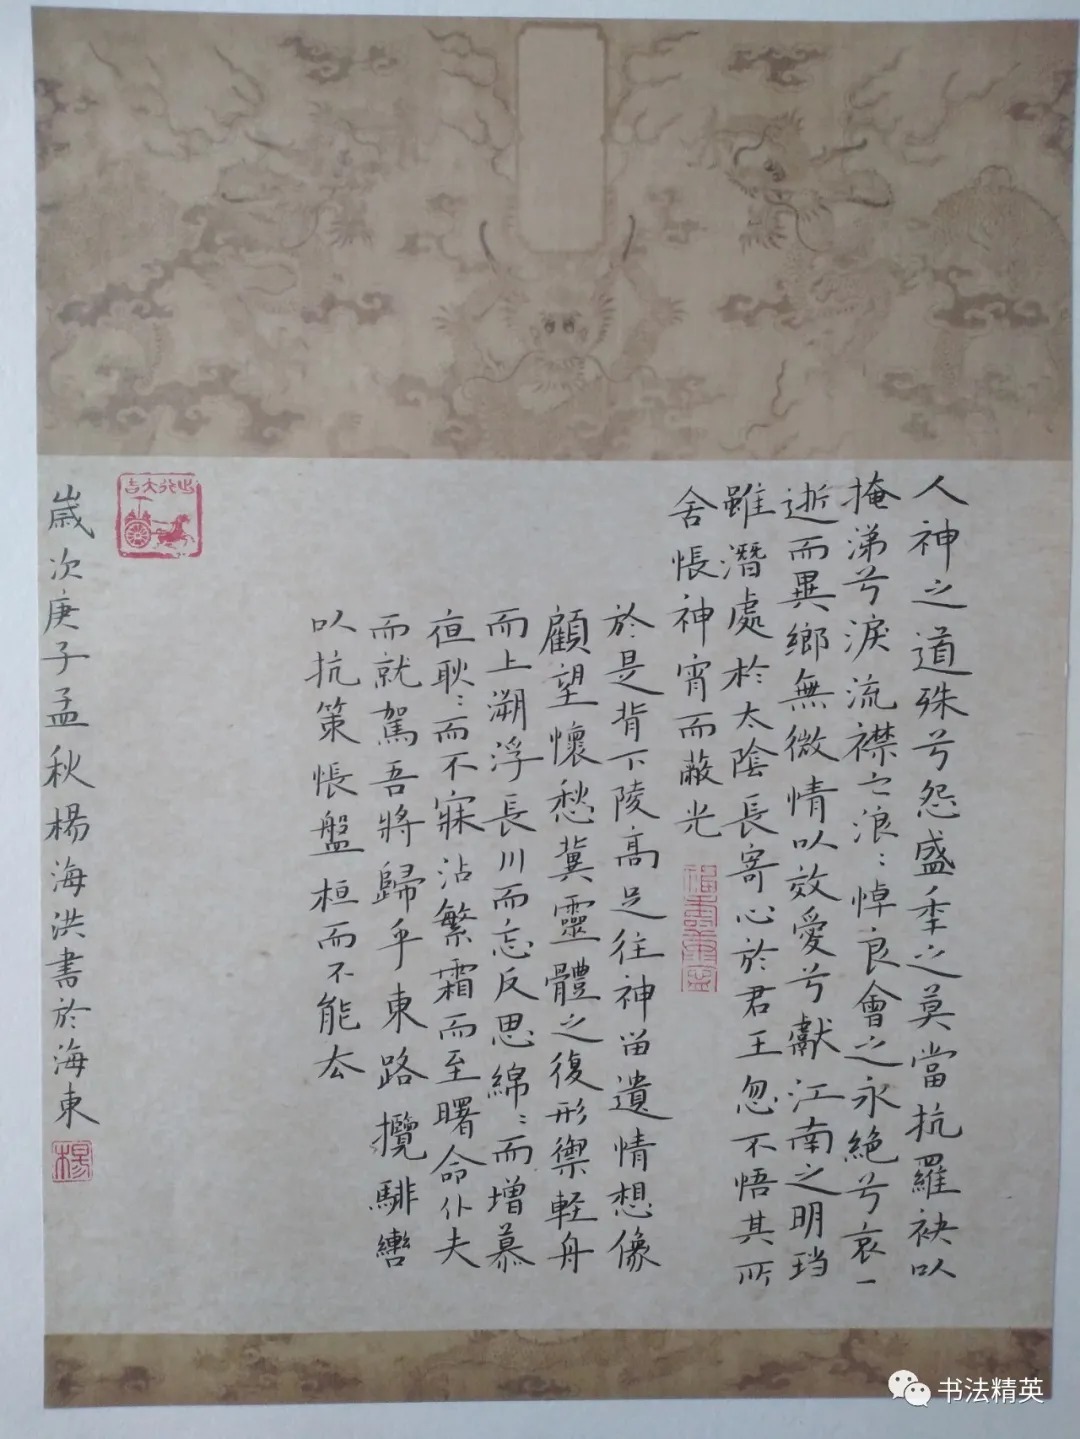 人神之道殊兮怨盛秊之莫當抗羅袂以
掩涕兮淚流襟之浪〻悼良會之永絶兮哀一
逝而異鄉無微情以效愛兮獻江南之明珰
雖潛處於太陰長寄心於君王忽不悟其所
舍悵神宵而蔽光
於是背下陵高足往神畄遺情想像
顧望懷愁冀靈體之復形禦軽舟
而上溯浮長川而忘反思綿〻而增慕
夜耿〻而不寐沾繁霜而至曙命仆夫
而就駕吾將歸乎東路攬騑轡
以抗策悵盤桓而不能厺
歲次庚子孟秋楊海洪書於海東
出行大吉
福壽康寧
楊
书法精英